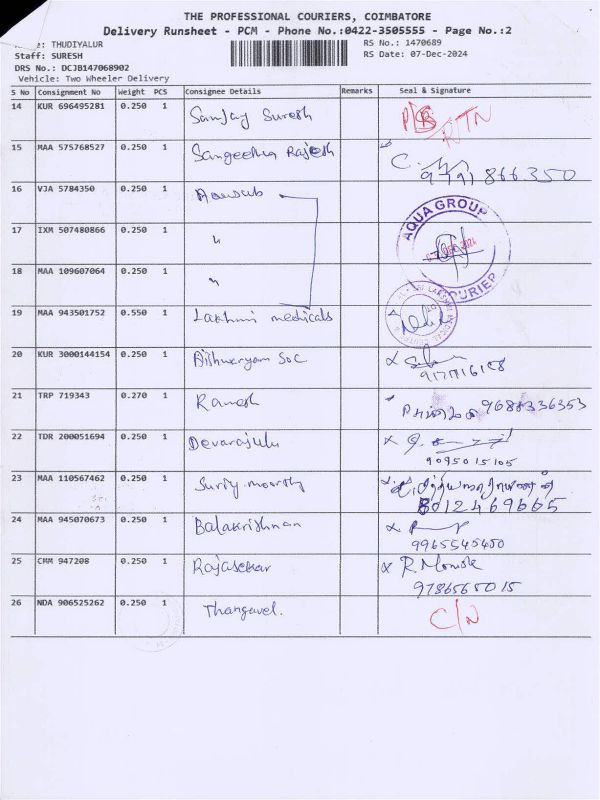 THE PROFESSIONAL COURIERS, COIMBATORE
Delivery Runsheet - PCM - Phone No.:0422-3505555 - Page No.:2
THUDIYALUR RS No.: 1470689
Staff: SURESH RS Date: 07-Dec-2024
DRS No.: DCJB147068902
Vehicle: Two Wheeler Delivery
S No Consignment No Weight PCS Consignee Details Remarks Seal & Signature
14 KUR 696495281 0.250 1 Sanjay Suresh RTN
15 MAA 575768527 0.250 1 Sangeetha Rajesh 866350
16 VJA 5784350 0.250 1
AQUA GROUP
17 IXM 507480866 0.250 1 "
18 MAA 109607064 0.250 1 "
COURIER
19 MAA 943501752 0.550 1 Lakhmi medicals
20 KUR 3000144154 0.250 1 Aishwaryam Soc
21 TRP 719343 0.270 1 Ramesh 9688336353
22 TDR 200051694 0.250 1 Devarajulu
9095015105
23 MAA 110567462 0.250 1 Suriy moorthy
8012469665
24 MAA 945070673 0.250 1 Balakrishnan
9965545450
25 CHM 947208 0.250 1 Rajasekar R. Monish
9786565015
26 NDA 906525262 0.250 1 Thangavel. C/N